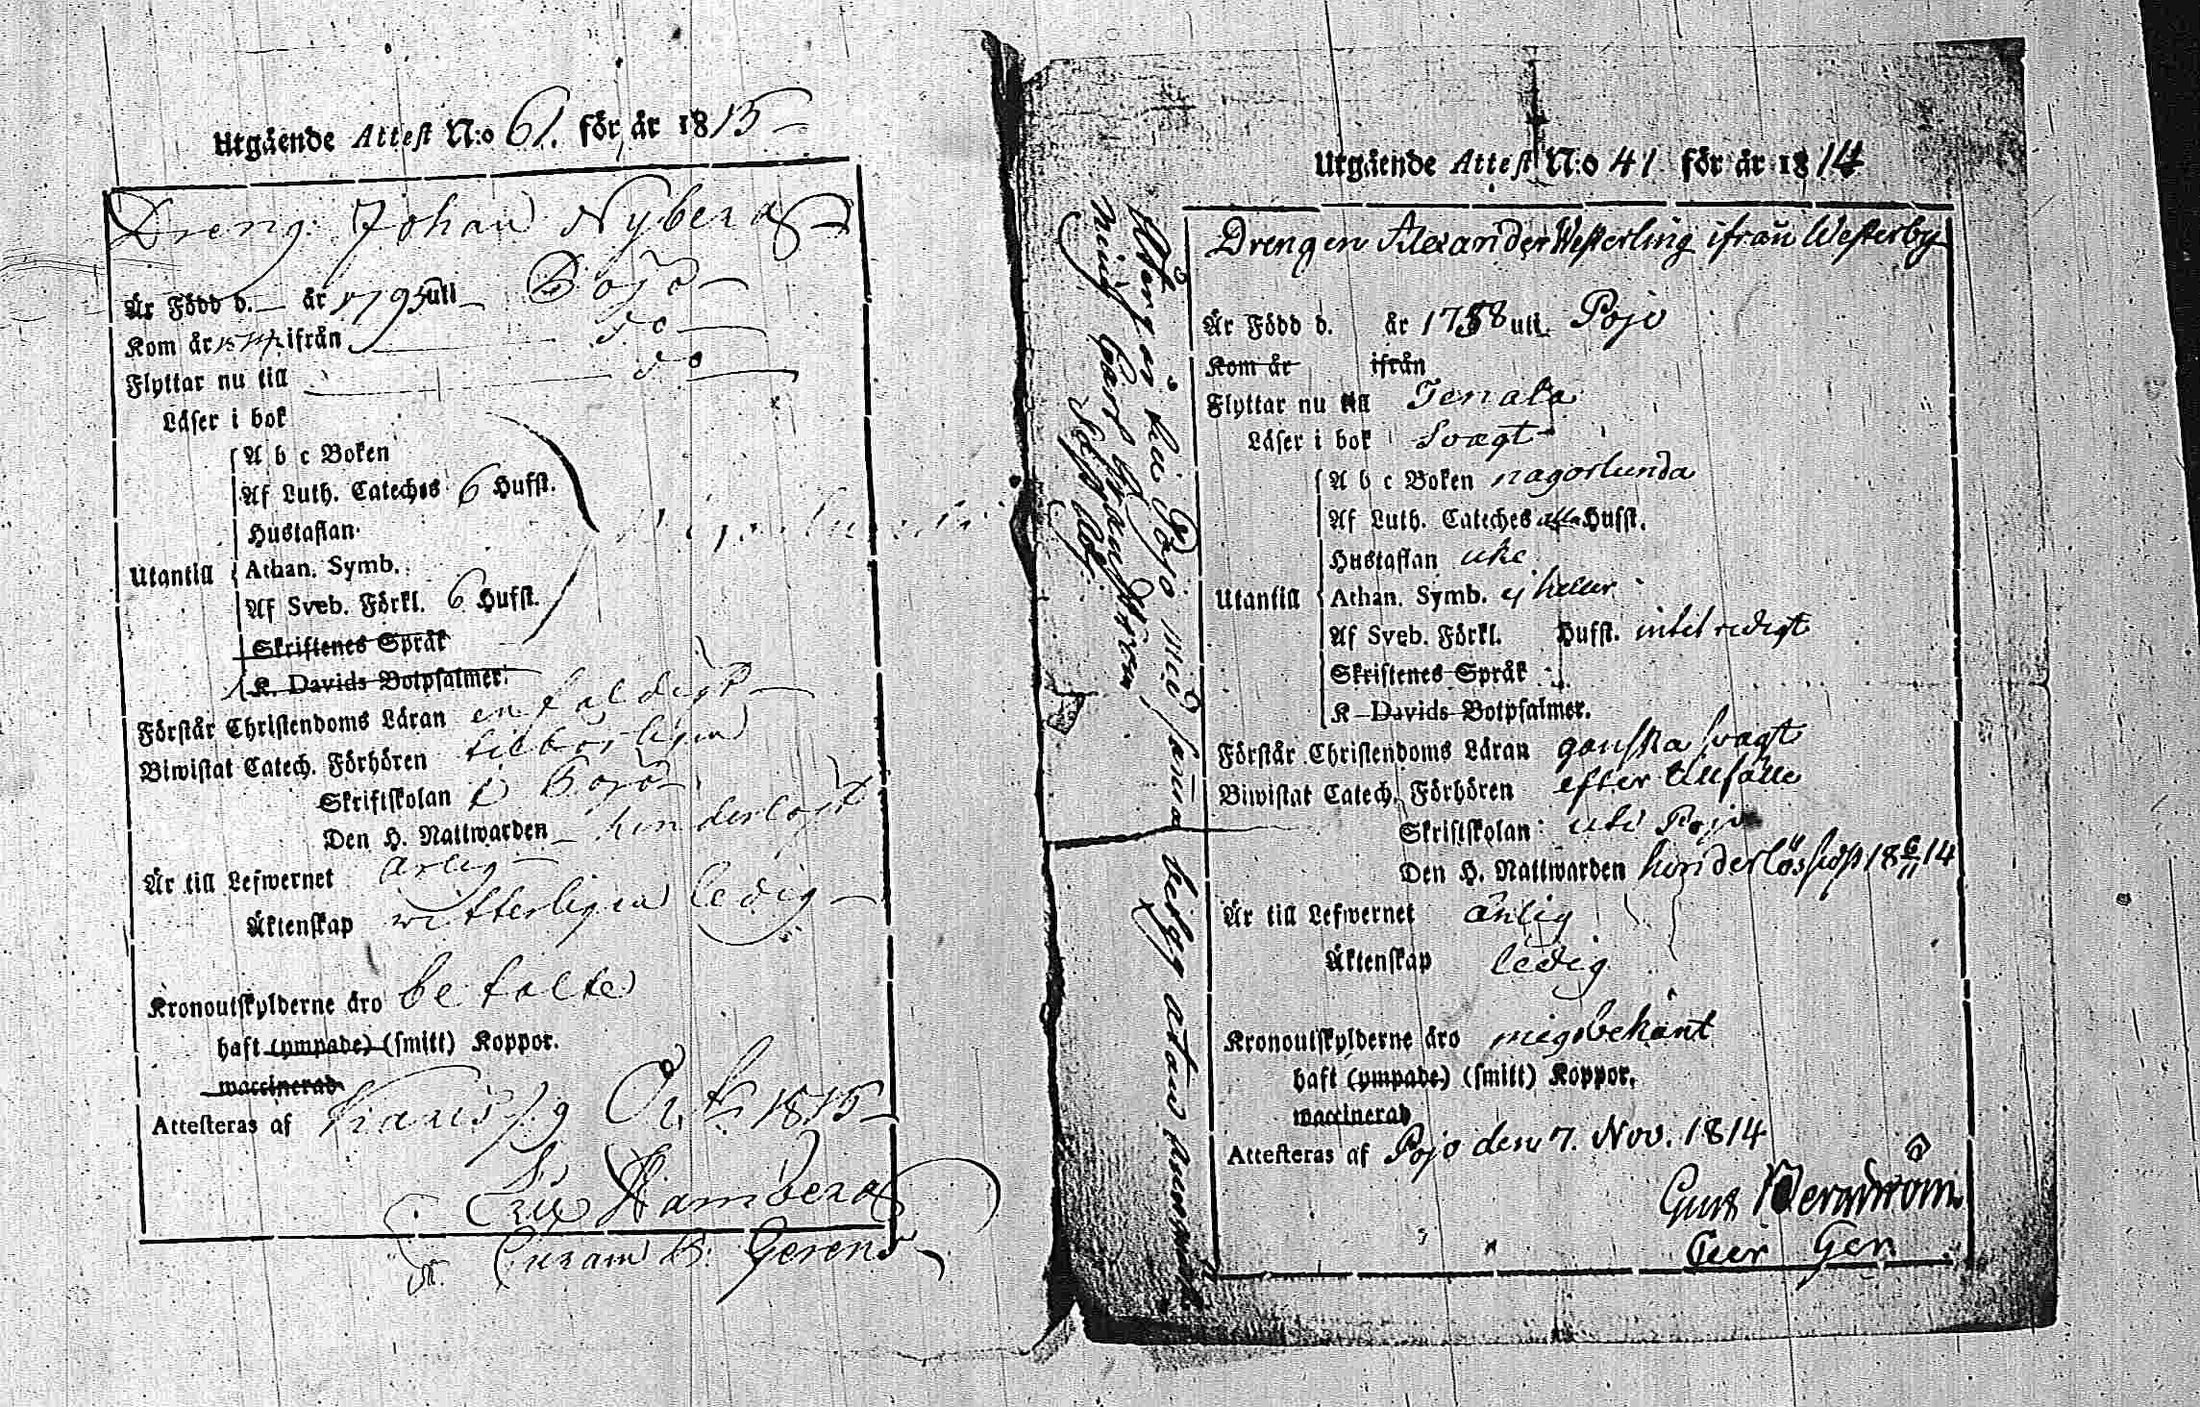 Utgående Attest N:o 61. för år 1815
Dreng. Johan Nyberg
Är Född d. — år 1795 uti Bojo
Kom år ifrån do
Flyttar nu till do
Läser i bok
A b c Boken
Af Luth. Cateches 6 Hufst.
Hustaflan
Utantill
Athan. Symb.
Af Sveb. Förkl. 6 Hufst.
Skriftenes Språk
K. Davids Botpsalmer.
Förstår Christendoms Läran enfaldigt
Biwistat Catech. Förhören tilbörligen
Skriftskolan i Bojo
Den H. Nattwarden hinderlöst
Är till Lefwernet ärlig
Äktenskap witterligen ledig
Kronoutskylderne äro betalte
haft (ympade) (smitt) Koppor.
waccinerad
Attesteras af Karis 1815
Eric Hamberg
Curam B. Gerens
Utgående Attest N:o 41 för år 1814
Drengen Alexander Westerling ifrån Westerby
Är Född d. år 1788 uti Pojo
Kom år ifrån
Flyttar nu till Tenala
Läser i bok Svagt
A b c Boken nagorlunda
Af Luth. Cateches alla Hufst.
Hustaflan icke
Utantill
Athan. Symb. ej heller
Af Sveb. Förkl. Hufst. intet redigt
Skriftenes Språk
K Davids Botpsalmer.
Förstår Christendoms Läran ganska svagt
Biwistat Catech. Förhören efter tillfälle
Skriftskolan uti Pojo
Den H. Nattwarden hinderlös sidst 18 6/11 14
Är till Lefwernet ärlig
Äktenskap ledig
Kronoutskylderne äro mig obekant
haft (ympade) (smitt) Koppor.
waccinerad
Attesteras af Pojo den 7. Nov. 1814
Gust Bergström
Ger